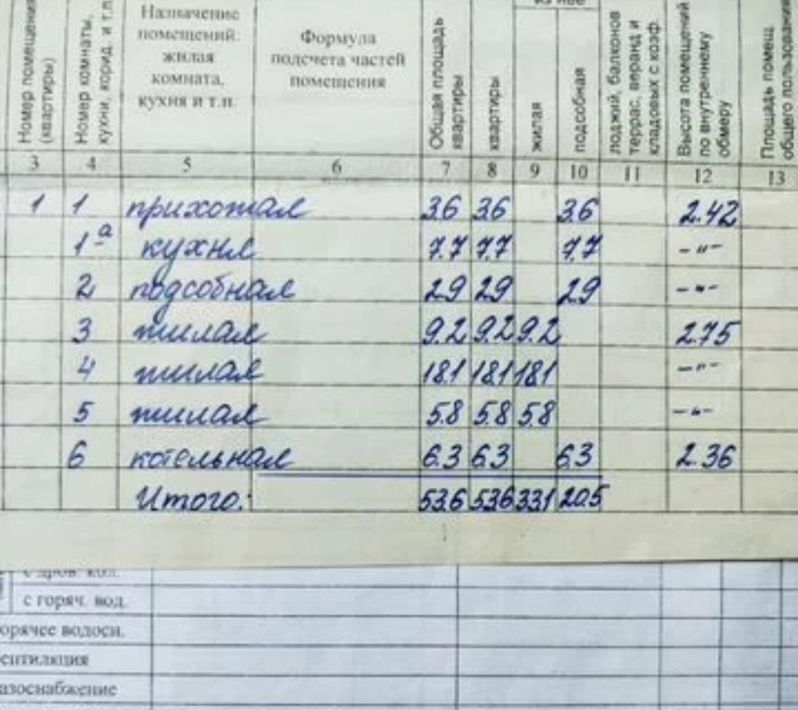 Номер помещения (квартиры)
Номер комнаты, кухни, корид. и т.п.
Назначение помещений: жилая комната, кухня и т.п.
Формула подсчета частей помещения
Общая площадь квартиры
квартиры
из нее
жилая
подсобная
лоджий, балконов террас, веранд и кладовых с коэф.
Высота помещений по внутреннему обмеру
Площадь помещ. общего пользования
3 4 5 6 7 8 9 10 11 12 13
1 1 прихожая 3.6 3.6 3.6 2.42
1а кухня 7.7 7.7 7.7 -"-
2 подсобная 2.9 2.9 2.9 -"-
3 жилая 9.2 9.2 9.2 2.75
4 жилая 18.1 18.1 18.1 -"-
5 жилая 5.8 5.8 5.8 -"-
6 котельная 6.3 6.3 6.3 2.36
Итого: 53.6 53.6 33.1 20.5
с горяч. вод.
орячее водосн.
ентиляция
азоснабжение